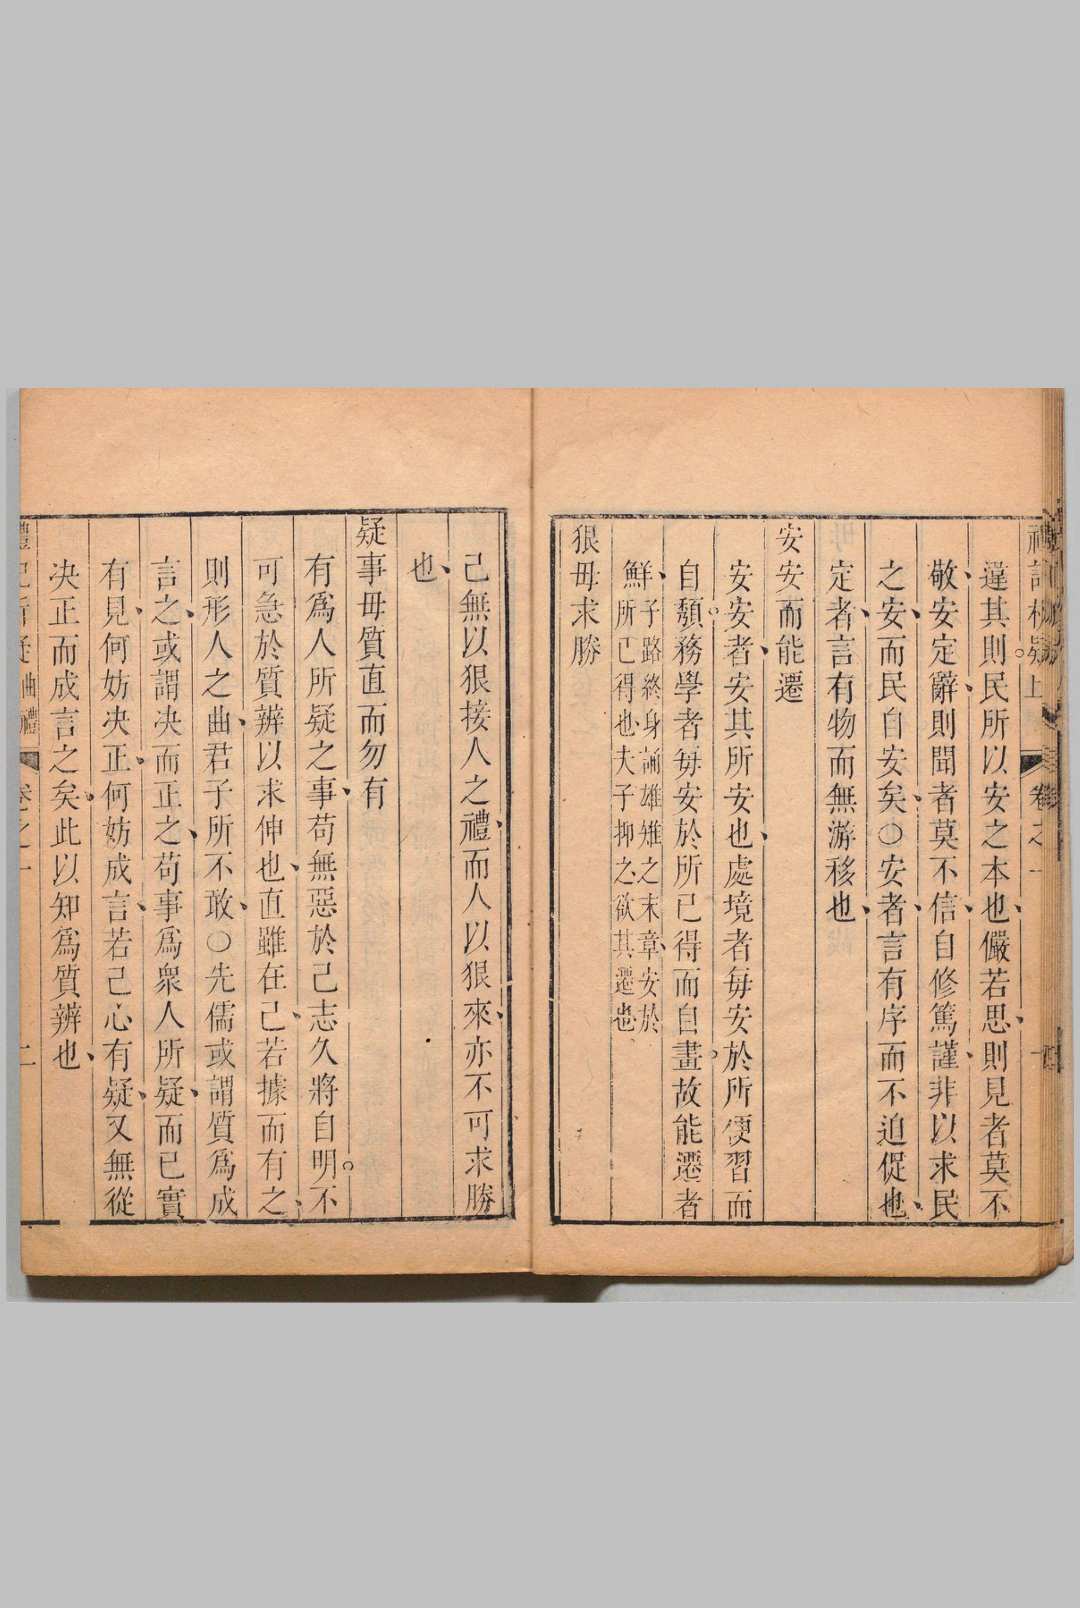 違其則民所以安之本也儼若思則見者莫不
敬安定辭則聞者莫不信自修篤謹非以求民
之安而民自安矣○安者言有序而不迫促也
定者言有物而無游移也
安安而能遷
安安者安其所安也處境者每安於所便習而
自頹務學者每安於所已得而自畫故能遷者
鮮子路終身誦雄雉之末章安於
所已得也夫子抑之欲其遷也
狠毋求勝
己無以狠接人之禮而人以狠來亦不可求勝
也
疑事毋質直而勿有
有為人所疑之事苟無惡於己志久將自明不
可急於質辨以求伸也直雖在己若據而有之
則形人之曲君子所不敢○先儒或謂質為成
言之或謂决而正之苟事為衆人所疑而已實
有見何妨决正何妨成言若己心有疑又無從
决正而成言之矣此以知為質辨也